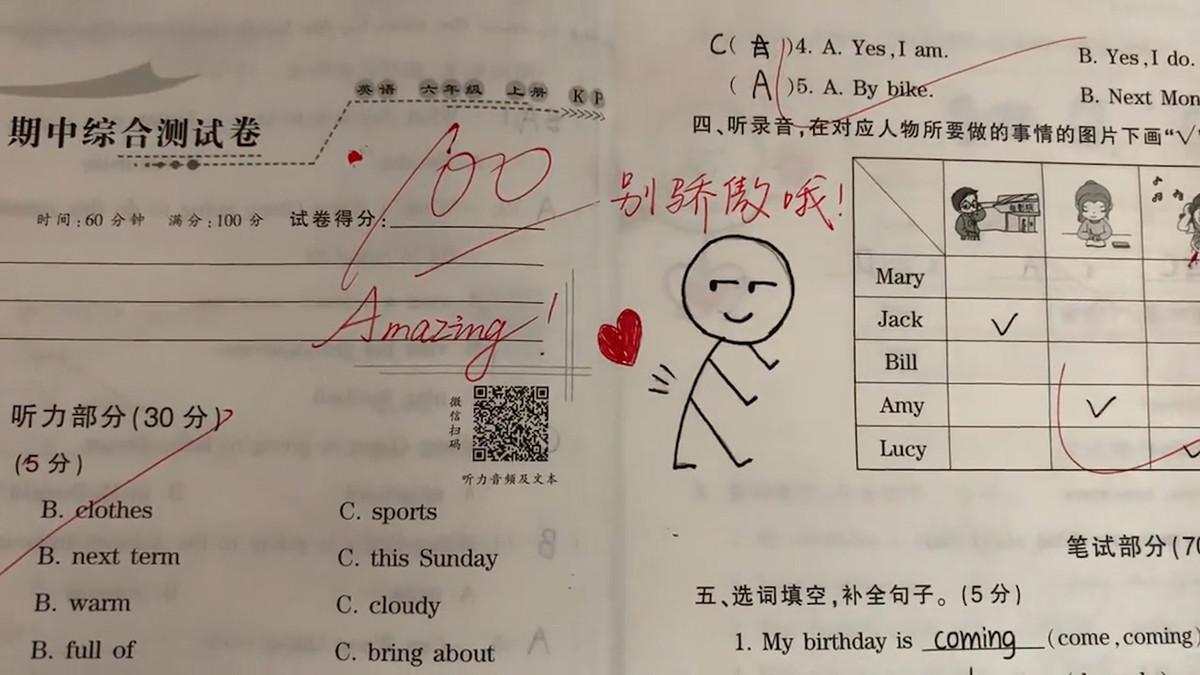 英语 六年级 上册 KP
期中综合测试卷
时间:60分钟 满分:100分 试卷得分:
100
Amazing!
听力部分(30分)
(5分)
微信扫码
听力音频及文本
B. clothes C. sports
B. next term C. this Sunday
B. warm C. cloudy
B. full of C. bring about
C( A )4. A. Yes,I am. B. Yes,I do.
( A )5. A. By bike. B. Next Mon
四、听录音,在对应人物所要做的事情的图片下画“√”
别骄傲哦!
Mary
Jack √
Bill
Amy √
Lucy √
笔试部分(70
五、选词填空,补全句子。(5分)
1. My birthday is coming (come,coming)